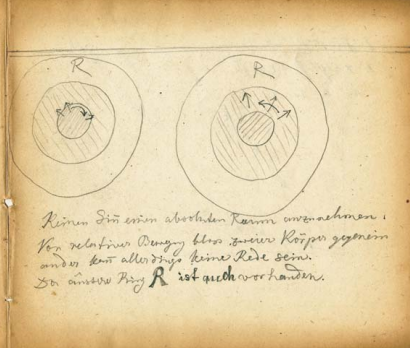 R R
Keinen Sin̄ einen absoluten Raum anzunehmen.
Von relativer Bewegung bloss zweier Körper gegenein
ander kan̄ allerdings keine Rede sein.
Der äussere Ring R ist auch vorhanden.